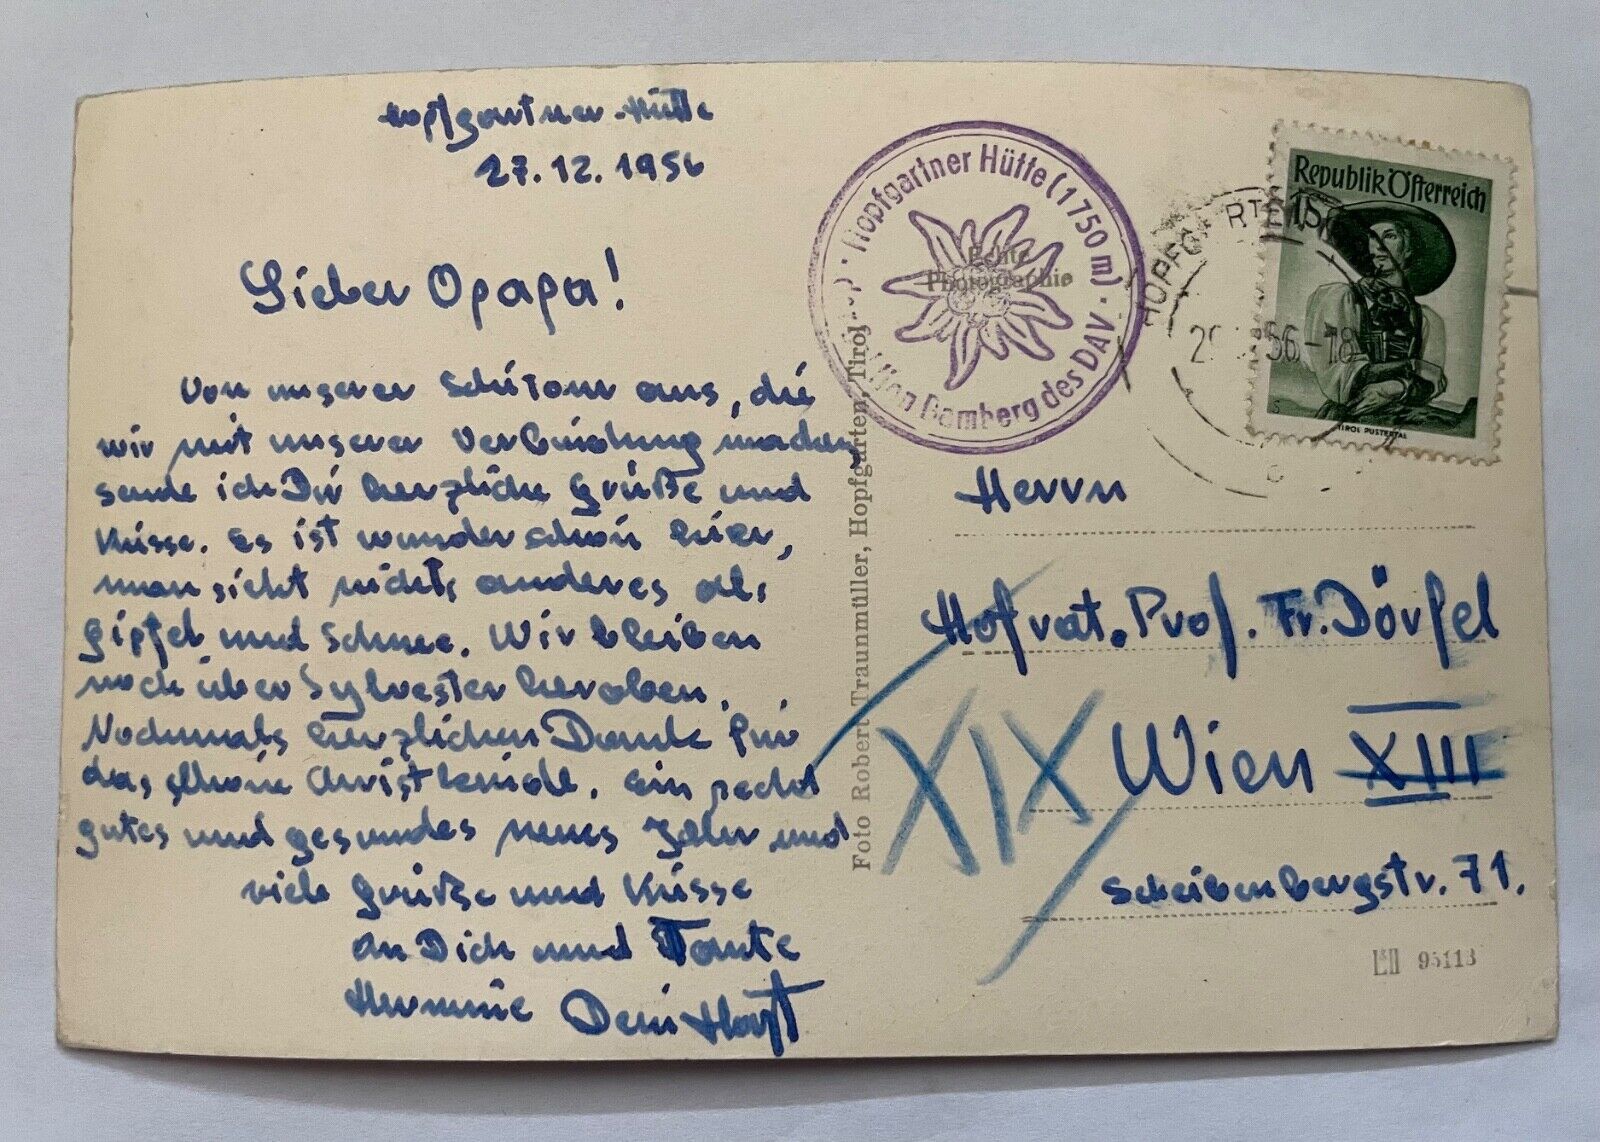 Hopfgartner-Hütte
27.12.1956
Lieber Opapa!
Von unserer Schitour aus, die
wir mit unserer Verbindung machen,
sende ich Dir herzliche Grüße und
Küsse. Es ist wunderschön hier,
man sieht nichts anderes als
Gipfel und Schnee. Wir bleiben
noch über Sylvester heroben.
Nochmals herzlichen Dank für
das schöne Christkindl. Ein recht
gutes und gesundes neues Jahr und
viele Grüße und Küsse
an Dich und Tante
Hermine Dein Horst
Hopfgartner Hütte (1750 m)
Bamberg des DAV
Echte
Photographie
Foto Robert Traunmüller, Hopfgarten, Tirol
HOPFGARTEN
56.-18
Republik Österreich
TIROL PUSTERTAL
Herrn
Hofrat. Prof. Fr. Dörfel
XIX Wien XIII
Scheibenbergstr. 71.
95113